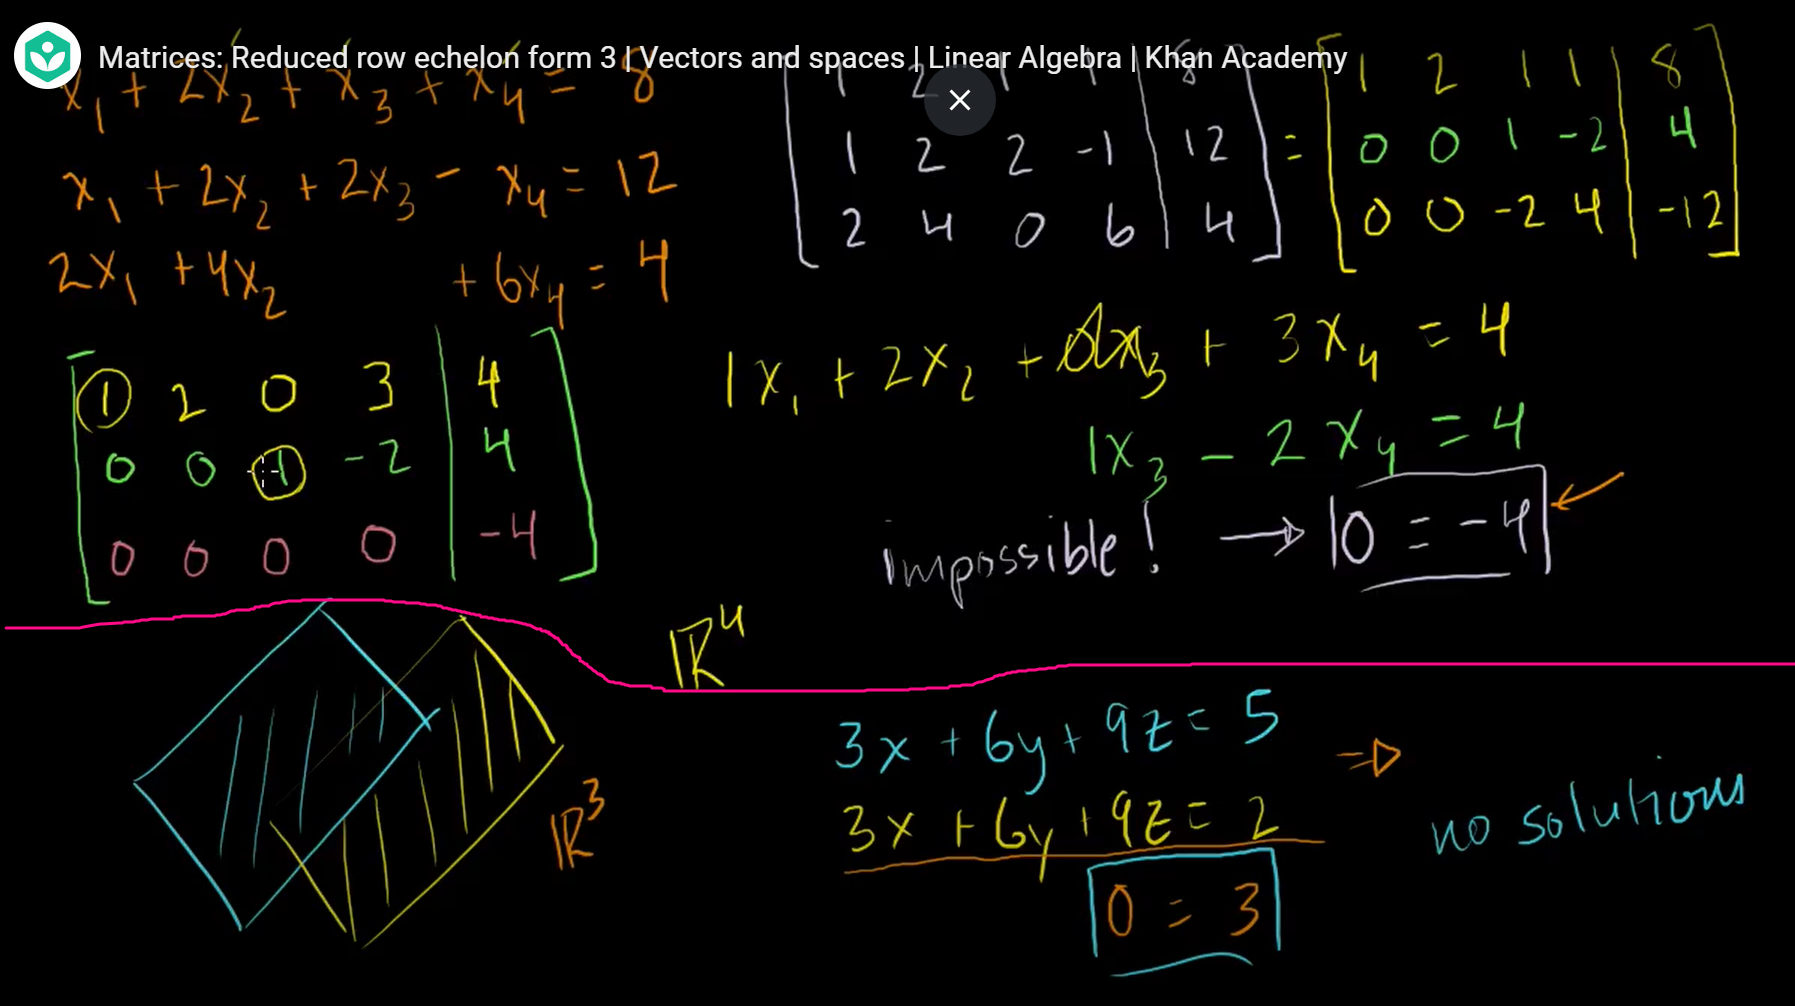 Matrices: Reduced row echelon form 3 | Vectors and spaces | Linear Algebra | Khan Academy
x₁ + 2x₂ + x₃ + x₄ = 8
x₁ + 2x₂ + 2x₃ - x₄ = 12
2x₁ + 4x₂ + 6x₄ = 4
1 2 1 1 | 8
1 2 2 -1 | 12
2 4 0 6 | 4
=
1 2 1 1 | 8
0 0 1 -2 | 4
0 0 -2 4 | -12
1 2 0 3 | 4
0 0 1 -2 | 4
0 0 0 0 | -4
1x₁ + 2x₂ + 0x₃ + 3x₄ = 4
1x₃ - 2x₄ = 4
impossible! → 0 = -4
ℝ⁴
ℝ³
3x + 6y + 9z = 5
3x + 6y + 9z = 2
0 = 3
⇒ no solutions